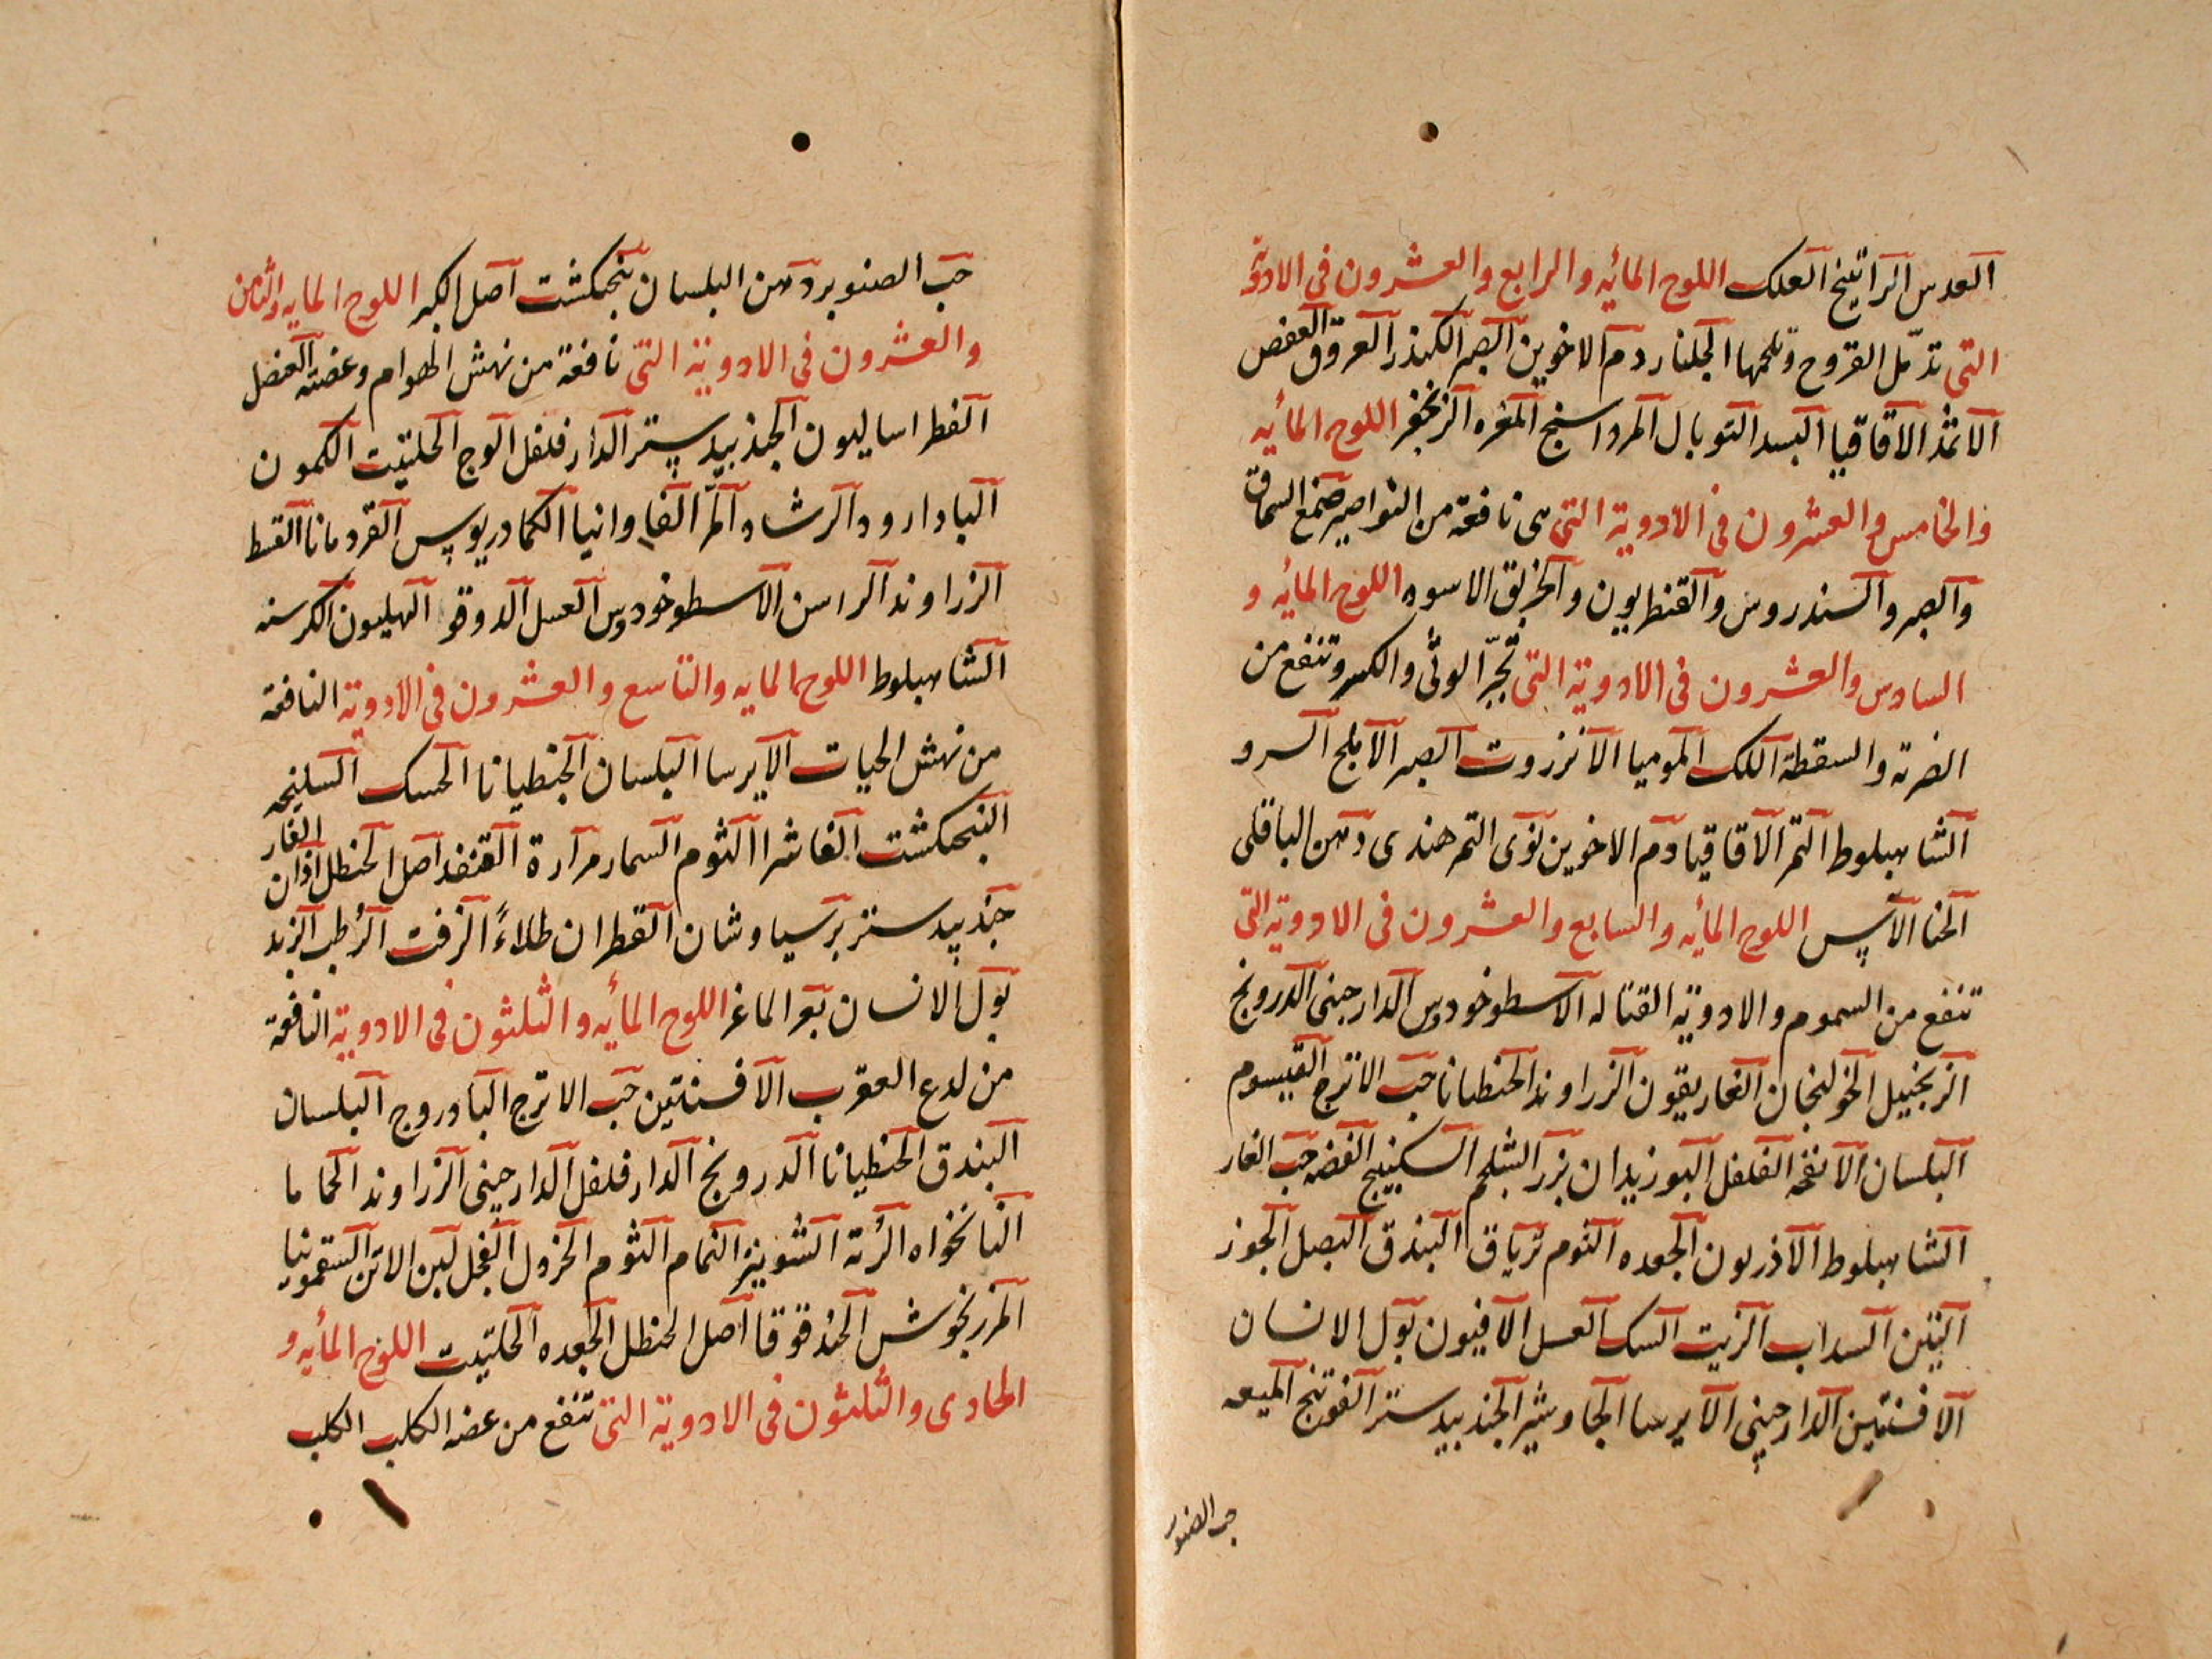 العدس الراتينج العلك اللوح المائيه والرابع والعشرون فى الادوية
التى تدمّل القروح وتلحمها الجلنار دم الاخوين الصبر الكندر العروق العفص
الاثمد الاقاقيا البسد التوبال المرداسنج المغره الزنجفر اللوح المأيه
والخامس والعشرون فى الادوية التى هى نافعة من النواصير صمغ السماق
والصبر والسندروس والقنطريون والخربق الاسود اللوح المائيه و
السادس والعشرون فى الادوية التى تجبّر الوثى والكسر وتنفع من
الضربة والسقطة اللك الموميا الانزروت الصبر الابلج السرو
الشاهبلوط التمر الاقاقيا دم الاخوين نوى التمر هندى دهن الباقلى
الحنا الآس اللوح المأيه والسابع والعشرون فى الادوية التى
تنفع من السموم والادوية القتاله الاسطوخودوس الدارجينى الدرونج
الزنجبيل الخولنجان الغاريقون الزراوند الحنطيانا حب الاترج القيسوم
البلسان الانفحه الفلفل البوزيدان بزر الشلجم السكبينج الفضه حب الغار
الشاهبلوط الآذريون الجعده الثوم ترياق البندق البصل الجوز
التين السداب الزيت السك العسل الافيون بول الانسان
الافسنتين الدارجينى الايرسا الجاوشير الجندبيدستر الفوتنج الميعه
حب الصنوبر
حب الصنوبر دهن البلسان بنجكشت اصل الكبر اللوح المايه والثامن
والعشرون فى الادوية التى نافعة من نهش الهوام وعضته العنصل
الفطراساليون الجندبيدستر الدارفلفل الوج الحلتيت الكمون
البادارود الرشاد المر الفاوانيا الكمادريوس القردمانا القسط
الزراوند الراسن الاسطوخودوس العسل الدوقو الهليون الكرسنه
الشاهبلوط اللوح المايه والتاسع والعشرون فى الادوية النافعة
من نهش الحيات الايرسا البلسان الجنطيانا الحسك السليخه
البنجكشت الفاشرا الثوم السمار مرارة القنفد اصل الحنظل اذان الفار
جندبيدستر برسياوشان القطران طلاءً الزفت الرطب الزبد
بول الانسان بعر الماعز اللوح المأيه والثلثون فى الادوية النافعة
من لدع العقرب الافسنتين حب الاترج البادروج البلسان
البندق الحنطيانا الدرونج الدارفلفل الدارجينى الزراوند الحماما
النانخواه الرُتة الشونيز النمام الثوم الخردل الفجل لبن الاتن السقمونيا
المرزنجوش الحندقوقا اصل الحنظل الجعده الحلتيت اللوح المأيه و
الحادى والثلثون فى الادوية التى تنفع من عضه الكلب الكلب